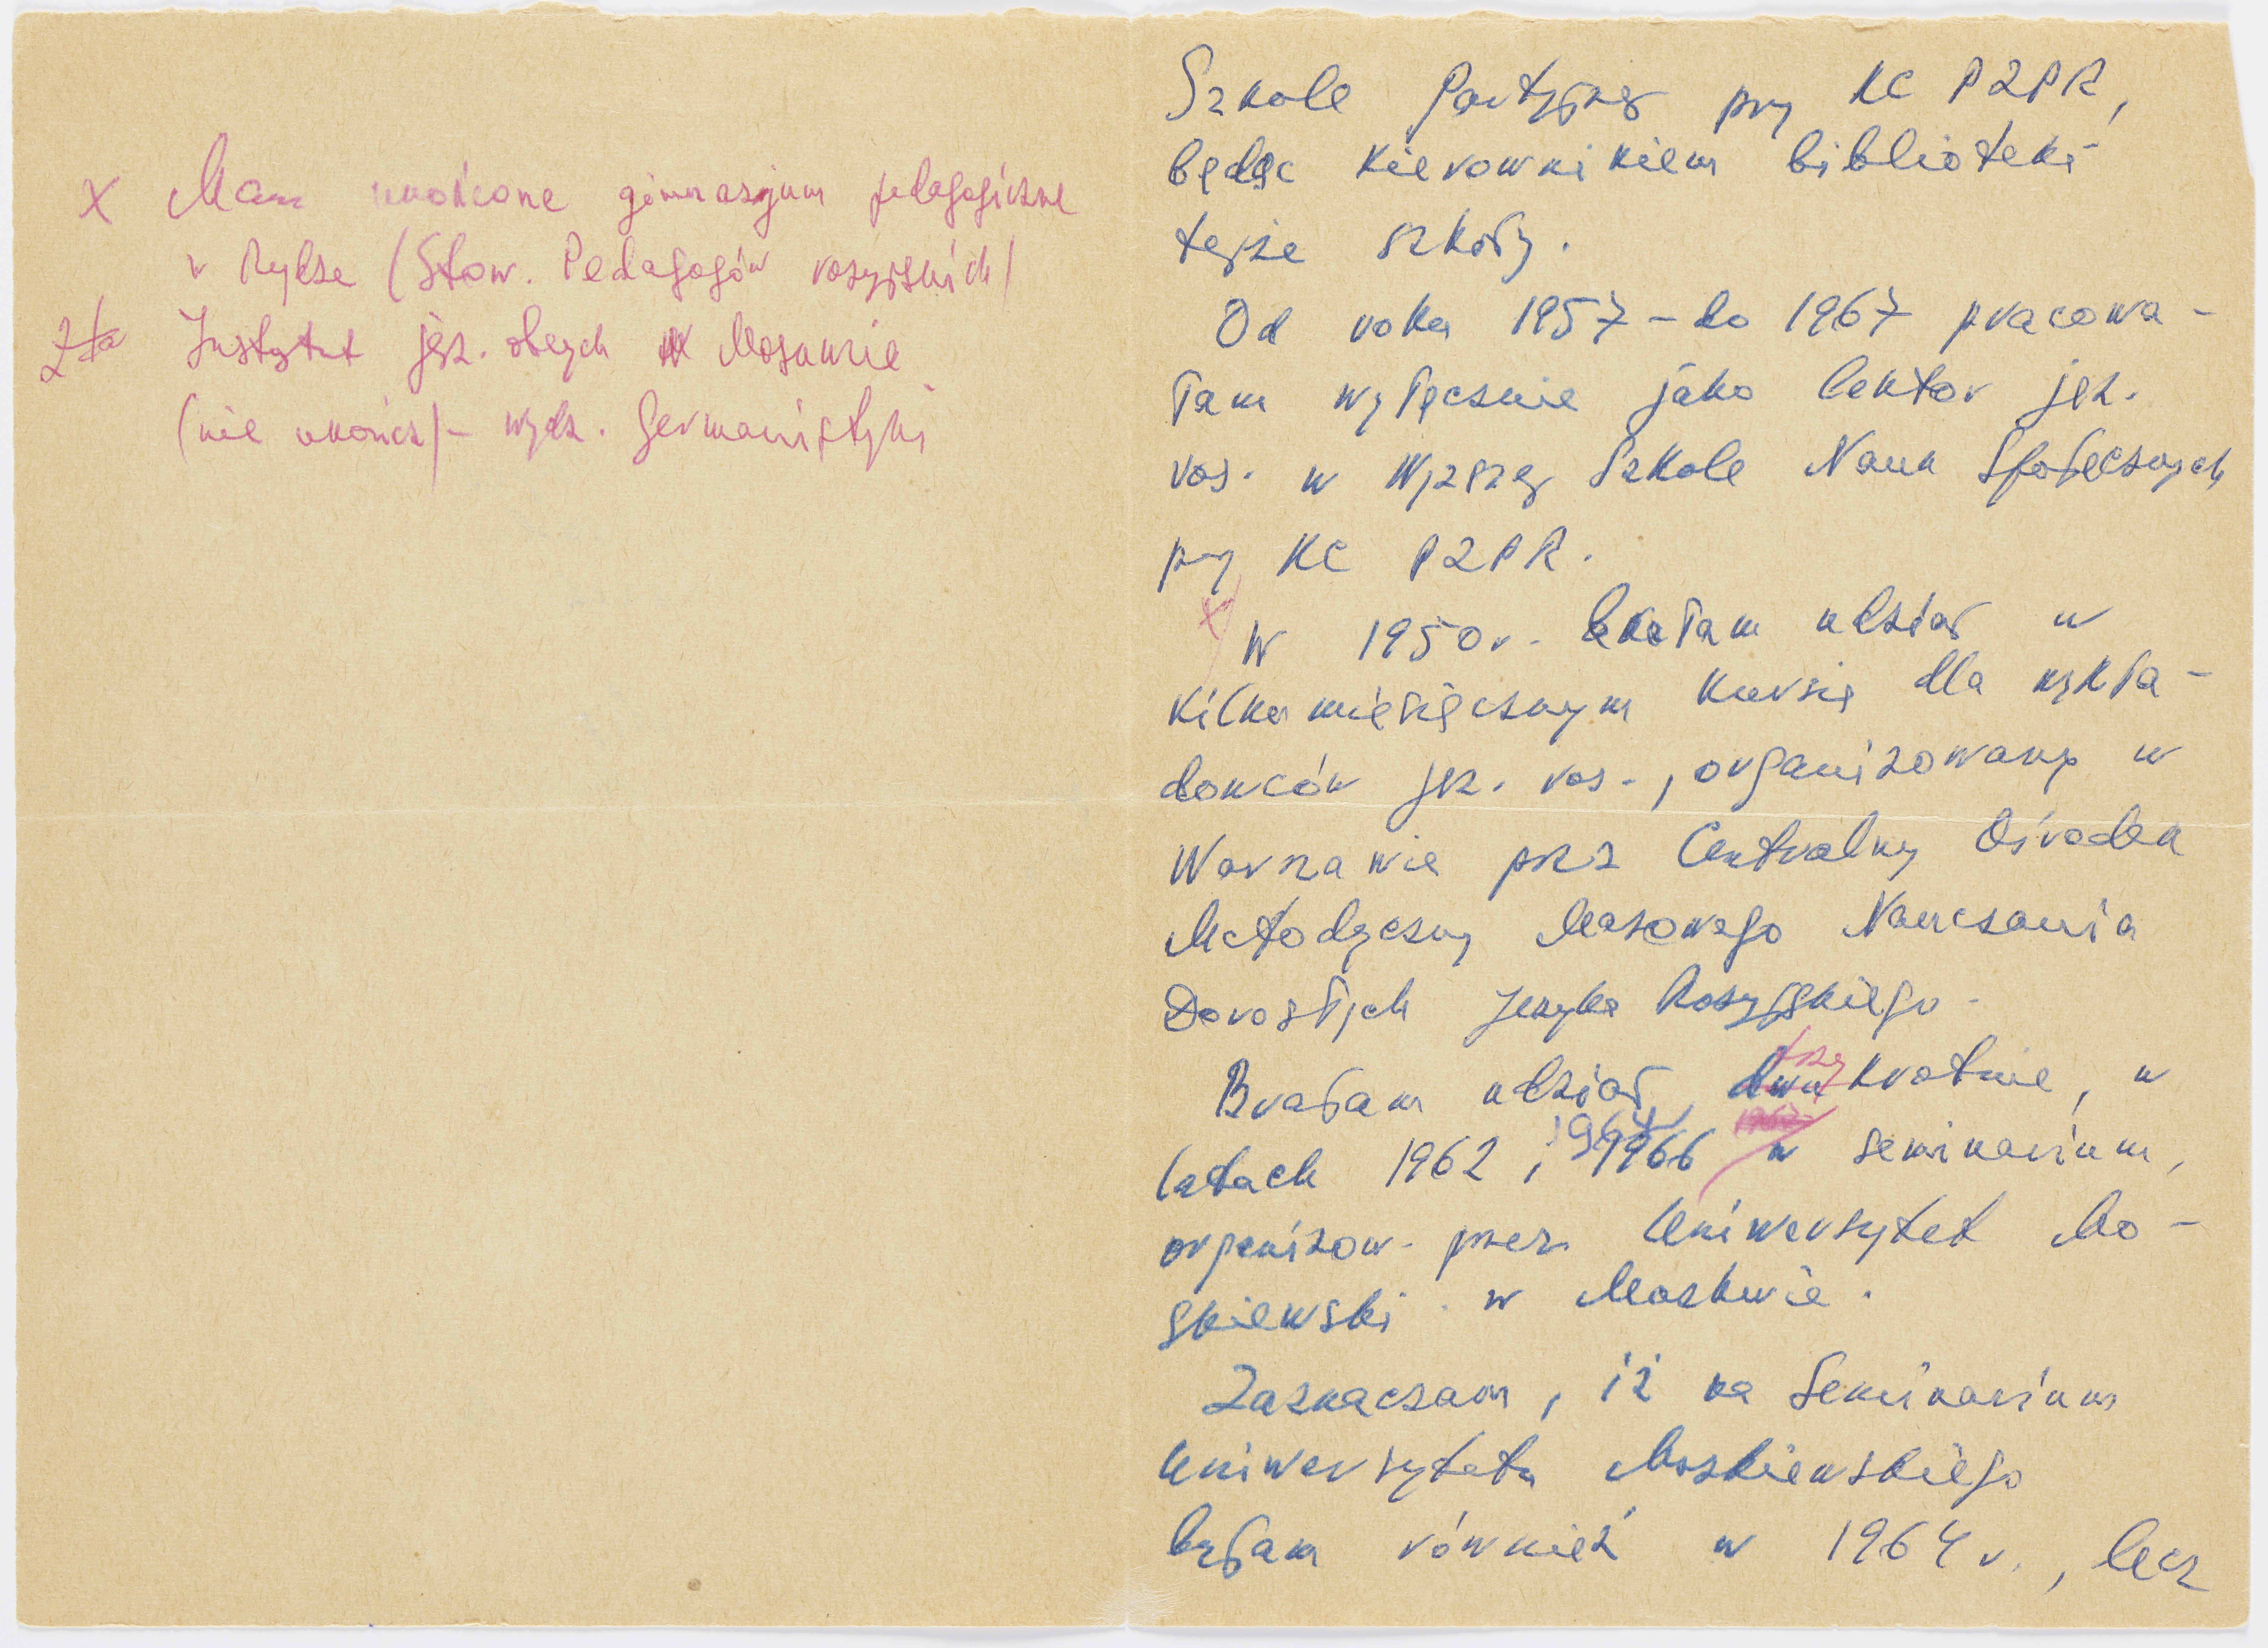 x Mam ukończone gimnazjum pedagogiczne
w Rydze (Stow. Pedagogów rosyjskich)
Instytut jęz. obcych w Moskwie
(nie ukończ) – wydz. Germanistyki
Szkole Partyjnej przy KC PZPR,
będąc kierownikiem biblioteki
tejże szkoły.
Od roku 1957 – do 1967 pracowa-
łam wyłącznie jako lektor jęz.
ros. w Wyższej Szkole Nauk Społecznych
przy KC PZPR.
x W 1950 r. brałam udział w
kilkumiesięcznym kursie dla wykła-
dowców jęz. ros., organizowany w
Warszawie prez Centralny Ośrodek
Metodyczny Masowego Nauczania
Dorosłych Języka Rosyjskiego.
trzy
Brałam udział dwukrotnie, w
1964
latach 1962, 1966 w seminarium,
organizow. przez Uniwersytet Mo-
skiewski w Moskwie.
Zaznaczam, iż na Seminarium
Uniwersytetu Moskiewskiego
byłam również w 1964 r., lecz